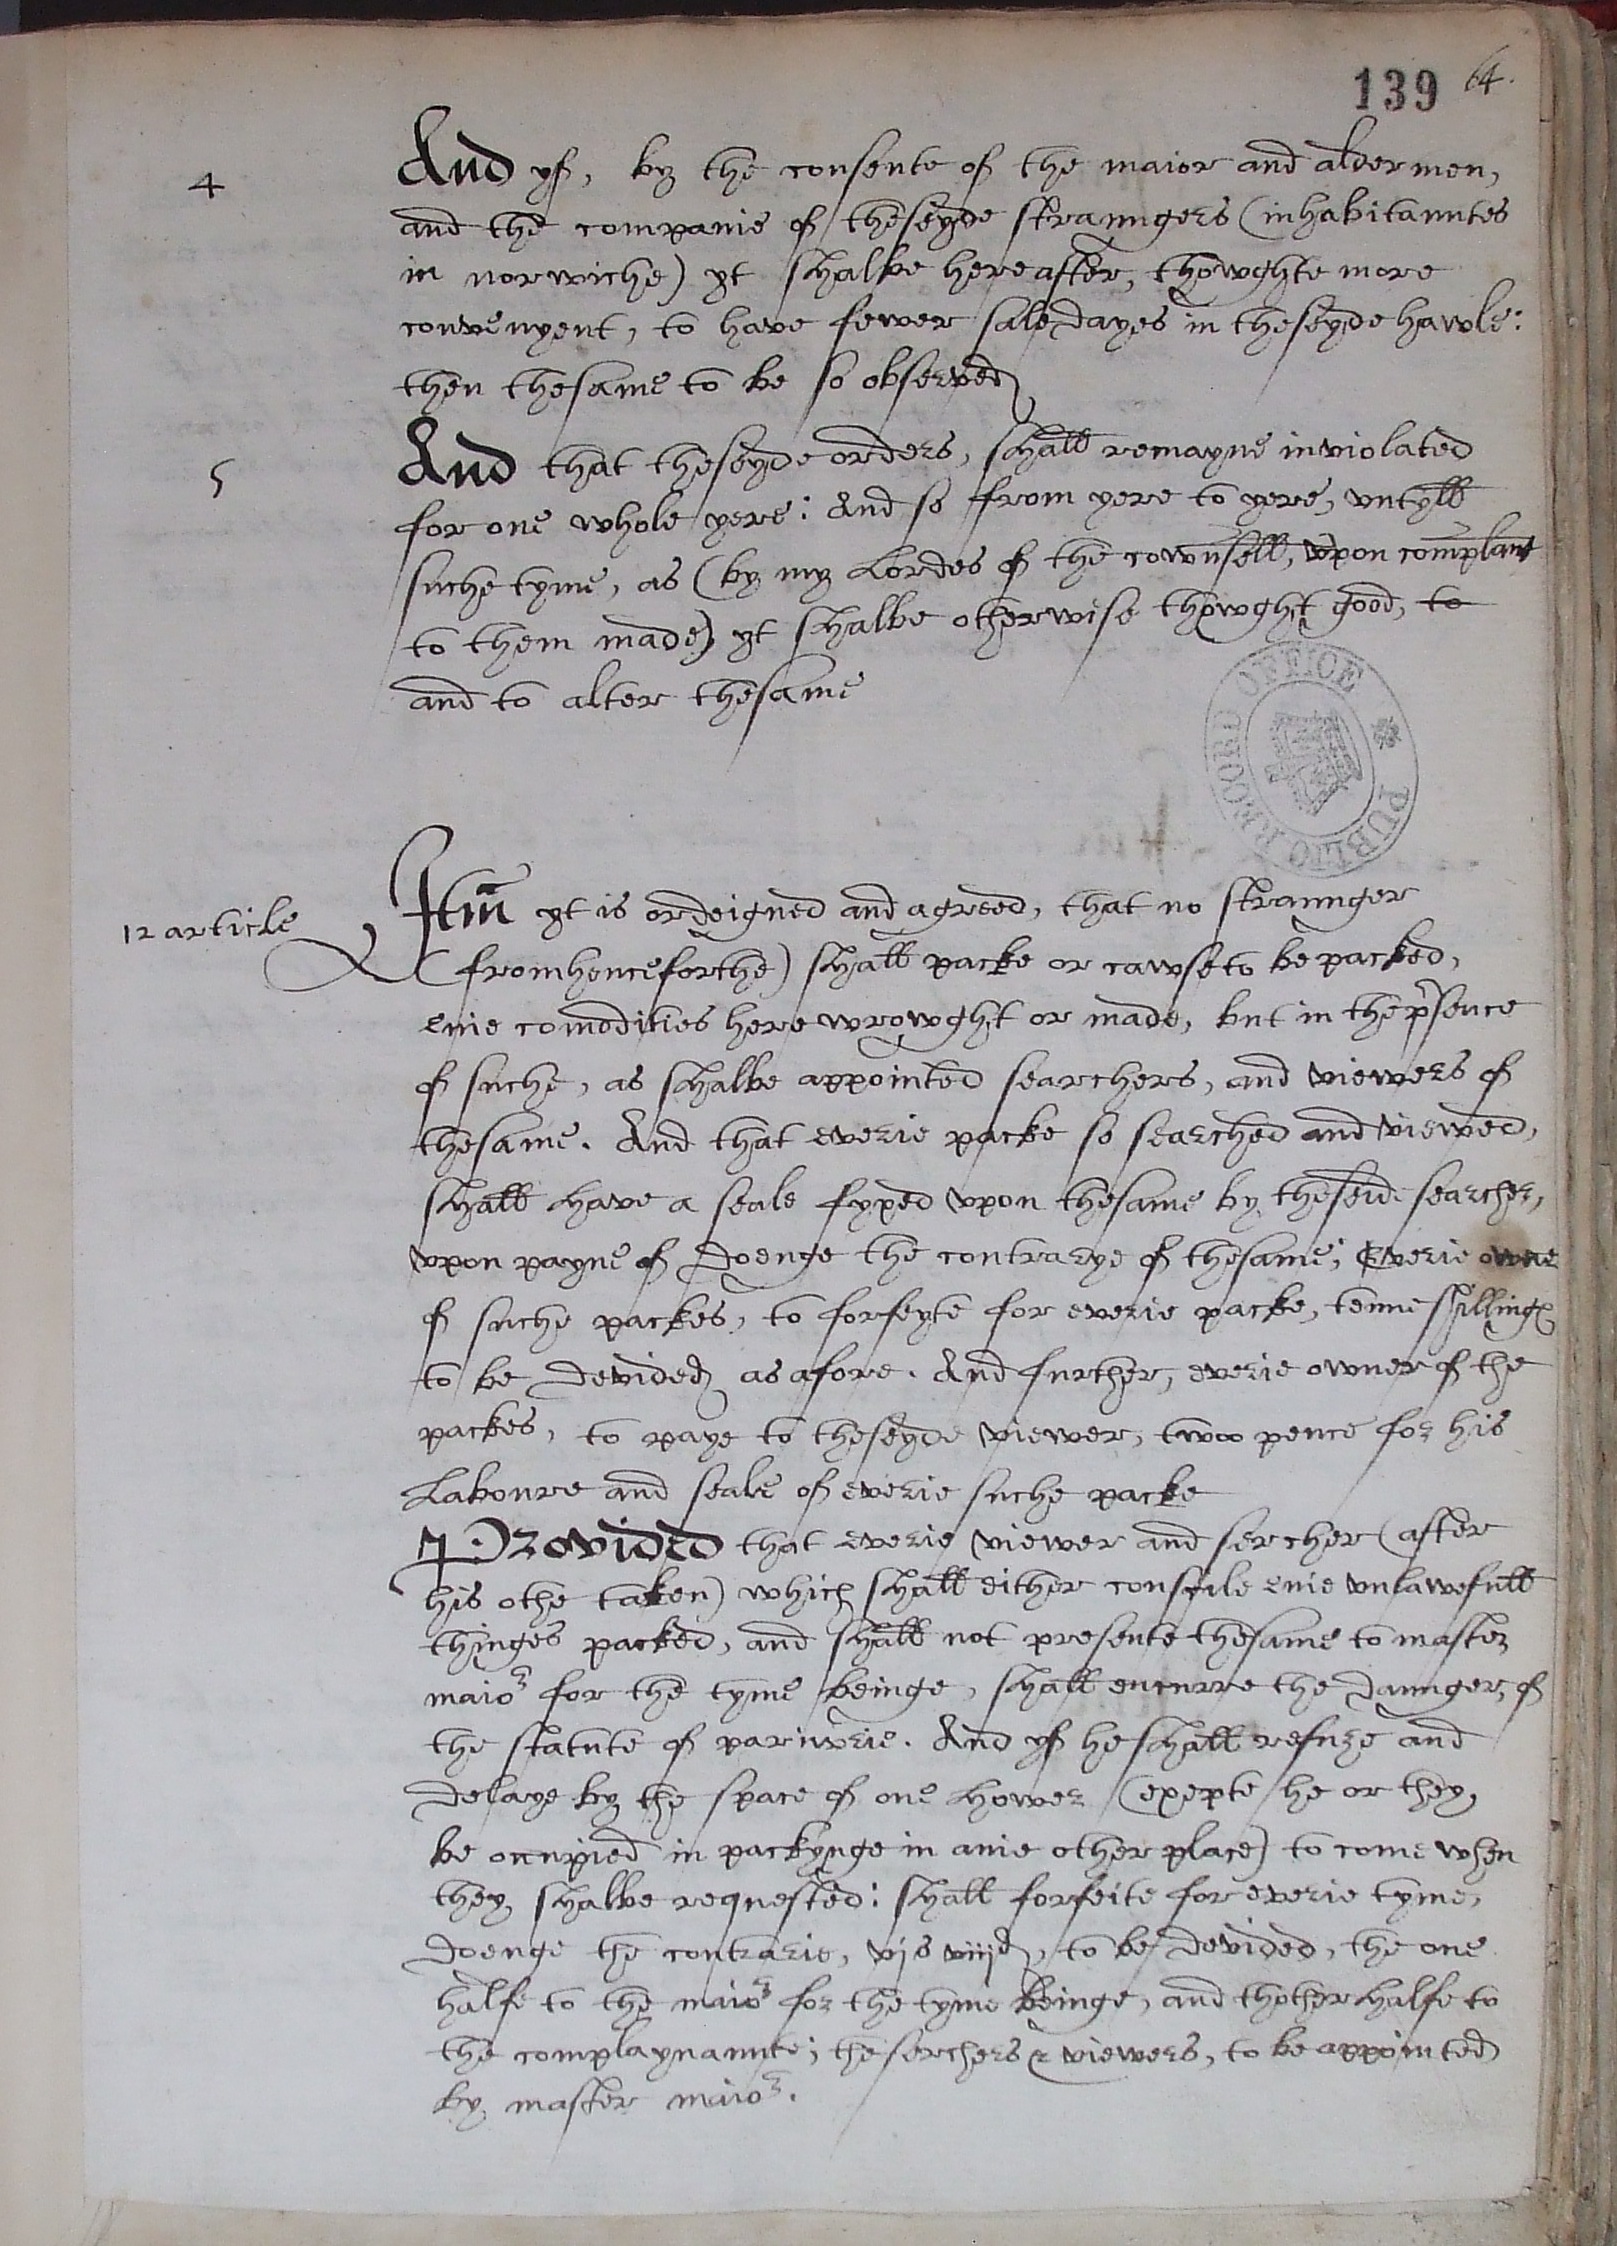 139 64.
4 And yf, by the consente of the maior and aldermen,
and the companie of theseyde straungers (inhabitauntes
in norwiche) yt shalbe hereafter, thowghte more
convenyent, to have fewer sale dayes in theseyde hawle:
then thesame to be so observed
5 And that theseyde orders, shall remayne inviolated
for one whole yere: And so from yere to yere, vntyll
suche tyme, as (by my Lordes of the cownsell, vpon complant
to them made) yt shalbe otherwise thowght good, to
and to alter thesame
PUBLIC RECORD OFFICE
12 article Itm yt is ordeigned and agreed, that no straunger
(fromhenceforthe) shall packe or cawse to be packed,
enie comodities here wrowght or made, but in the prsence
of suche, as shalbe appointed searchers, and viewers of
thesame. And that everie packe so searched and viewed,
shall have a seale fyxed vpon thesame by theseid searcher,
vpon payne of doenge the contrarye of thesame; Everie owne
of suche packes, to forfeyte for everie packe, tenne shilling
to be devided as afore. And further, everie owner of the
packes, to paye to theseyde viewer, twoo pence for his
Laboure and seale of everie suche packe
Provided that everie viewer and sercher (after
his othe taken) which shall either consile enie vnlawefull
thinges packed, and shall not presente thesame to master
maior for the tyme beinge, shall encurre the daunger of
the statute of pariurie. And yf he shall refuze and
delaye by the space of one hower (exepte he or they
be occupied in packynge in anie other place) to come when
they shalbe requested: shall forfeite for everie tyme,
doenge the contrarie, vjs viijd, to be devided, the one
halfe to the maior for the tyme beinge, and thother halfe to
the complaynaunte; the serchers & viewers, to be appointed
by master maior.